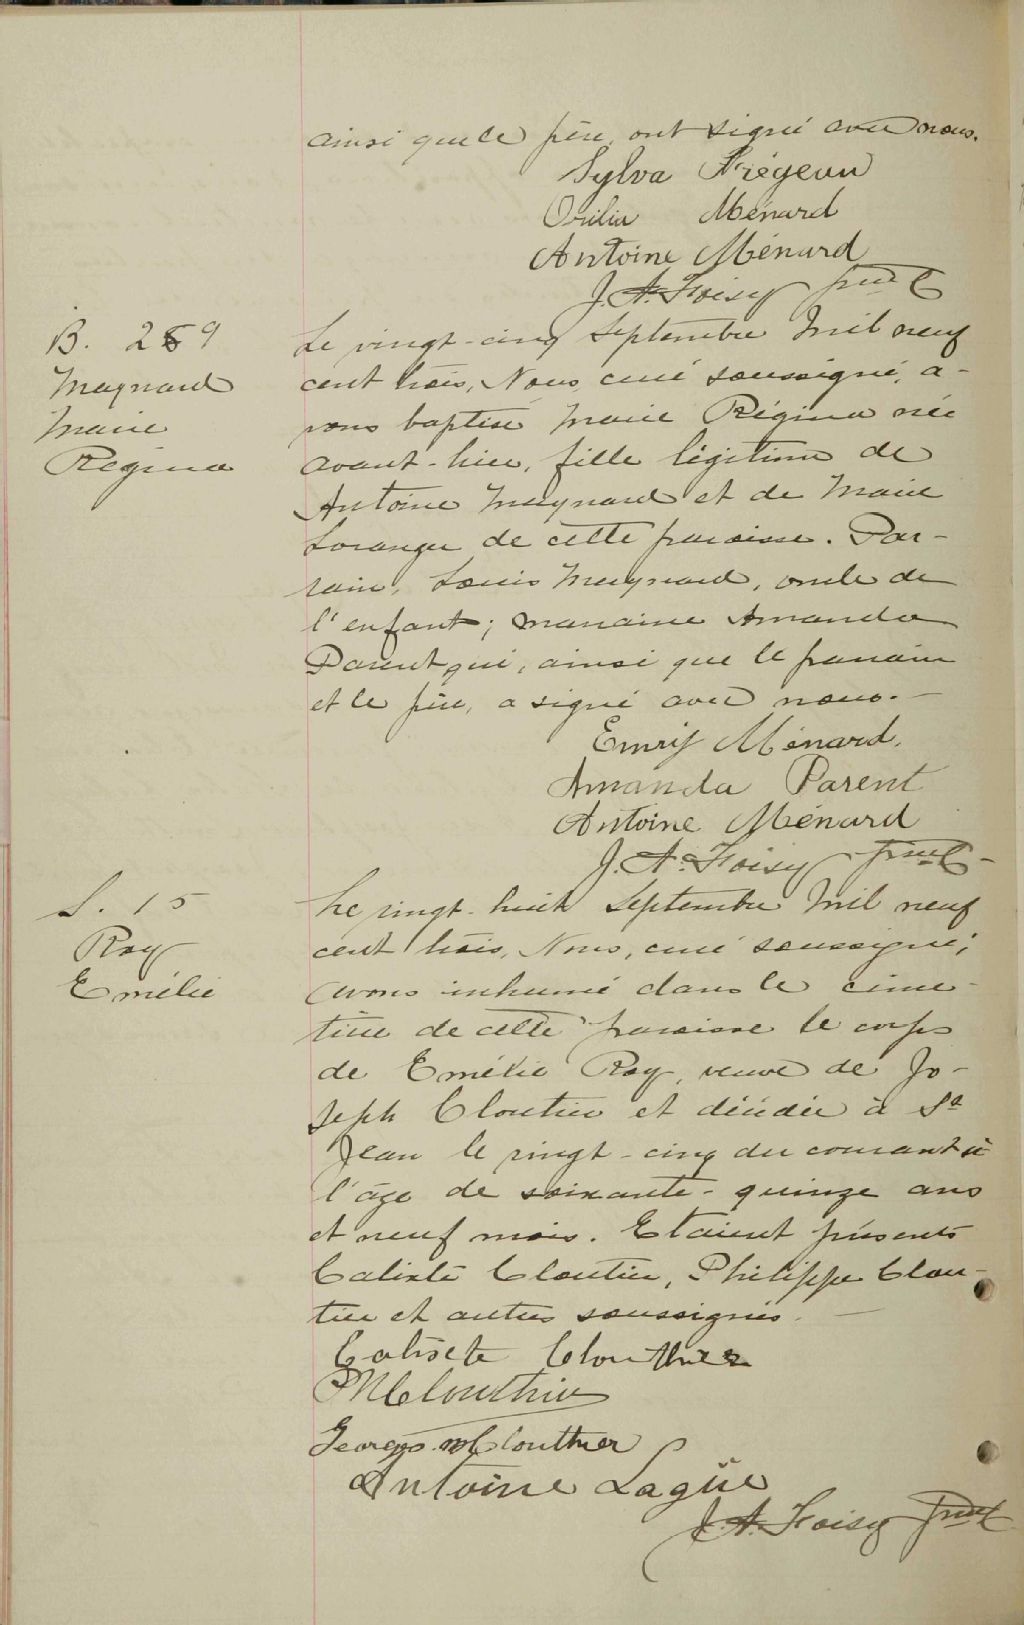 ainsi que le père, ont signé avec nous.
Sylva Frégeau
Orilia Ménard
Antoine Ménard
J. A. Foisy ptre C
B. 269
Maynard
Marie
Régina
Le vingt-cinq Septembre Mil neuf
cent trois, Nous, curé soussigné, a-
vons baptisé Marie Régina née
avant-hier, fille légitime de
Antoine Maynard et de Marie
Loranger de cette paroisse. Par-
rain, Louis Maynard, oncle de
l'enfant; marraine Amanda
Parent qui, ainsi que le parrain
et le père, a signé avec nous.-
Ménard.
Amanda Parent
Antoine Ménard
J. A. Foisy ptre C-
S. 15
Roy
Emélie
Le vingt-huit Septembre Mil neuf
cent trois, Nous, curé soussigné,
avons inhumé dans le cime-
tière de cette paroisse le corps
de Emélie Roy, veuve de Jo-
seph Cloutier et décédée à St
Jean le vingt-cinq du courant à
l'âge de soixante-quinze ans
et neuf mois. Etaient présents
Calixte Cloutier, Philippe Clou-
tier et autres soussignés.-
Calixte Clouthier
Clouthier
Georges Clouthier
Antoine Lagüe
J. A. Foisy ptre C